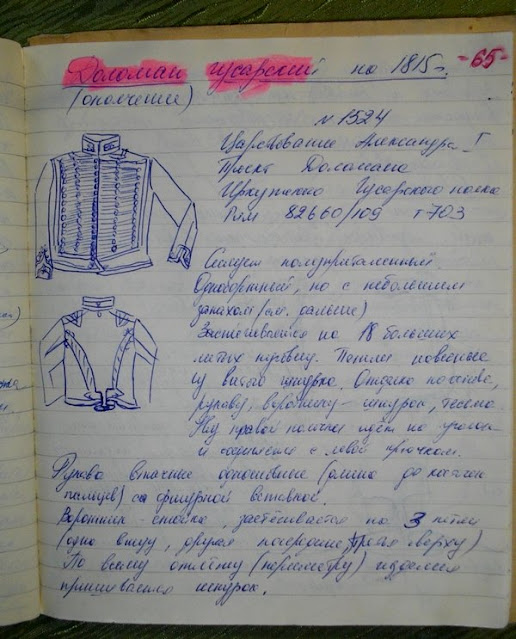 Доломан гусарский на 1815 г. -65-
(ополчение)
№ 1524
Царствование Александра I
Проект Доломана
Иркутского Гусарского полка
82660/109 т 703
Силуэт полуприталенный.
Однобортный, но с небольшим
запахом (см. дальше)
Застёгивается на 18 больших
литых пуговиц. Петли навесные
из витого шнурка. Отделка по
рукаву, воротнику - шнурок, тесьма.
правой полочки идёт на уголок
и с левой крючком.
Рукава втачные одношовные (длина до
пальцев) со фигурной вставкой.
Воротник - стойка, застёгивается на 3 петли
(одна внизу, другая посередине, третья вверху)
По всему (периметру) изделия
пришивается шнурок.